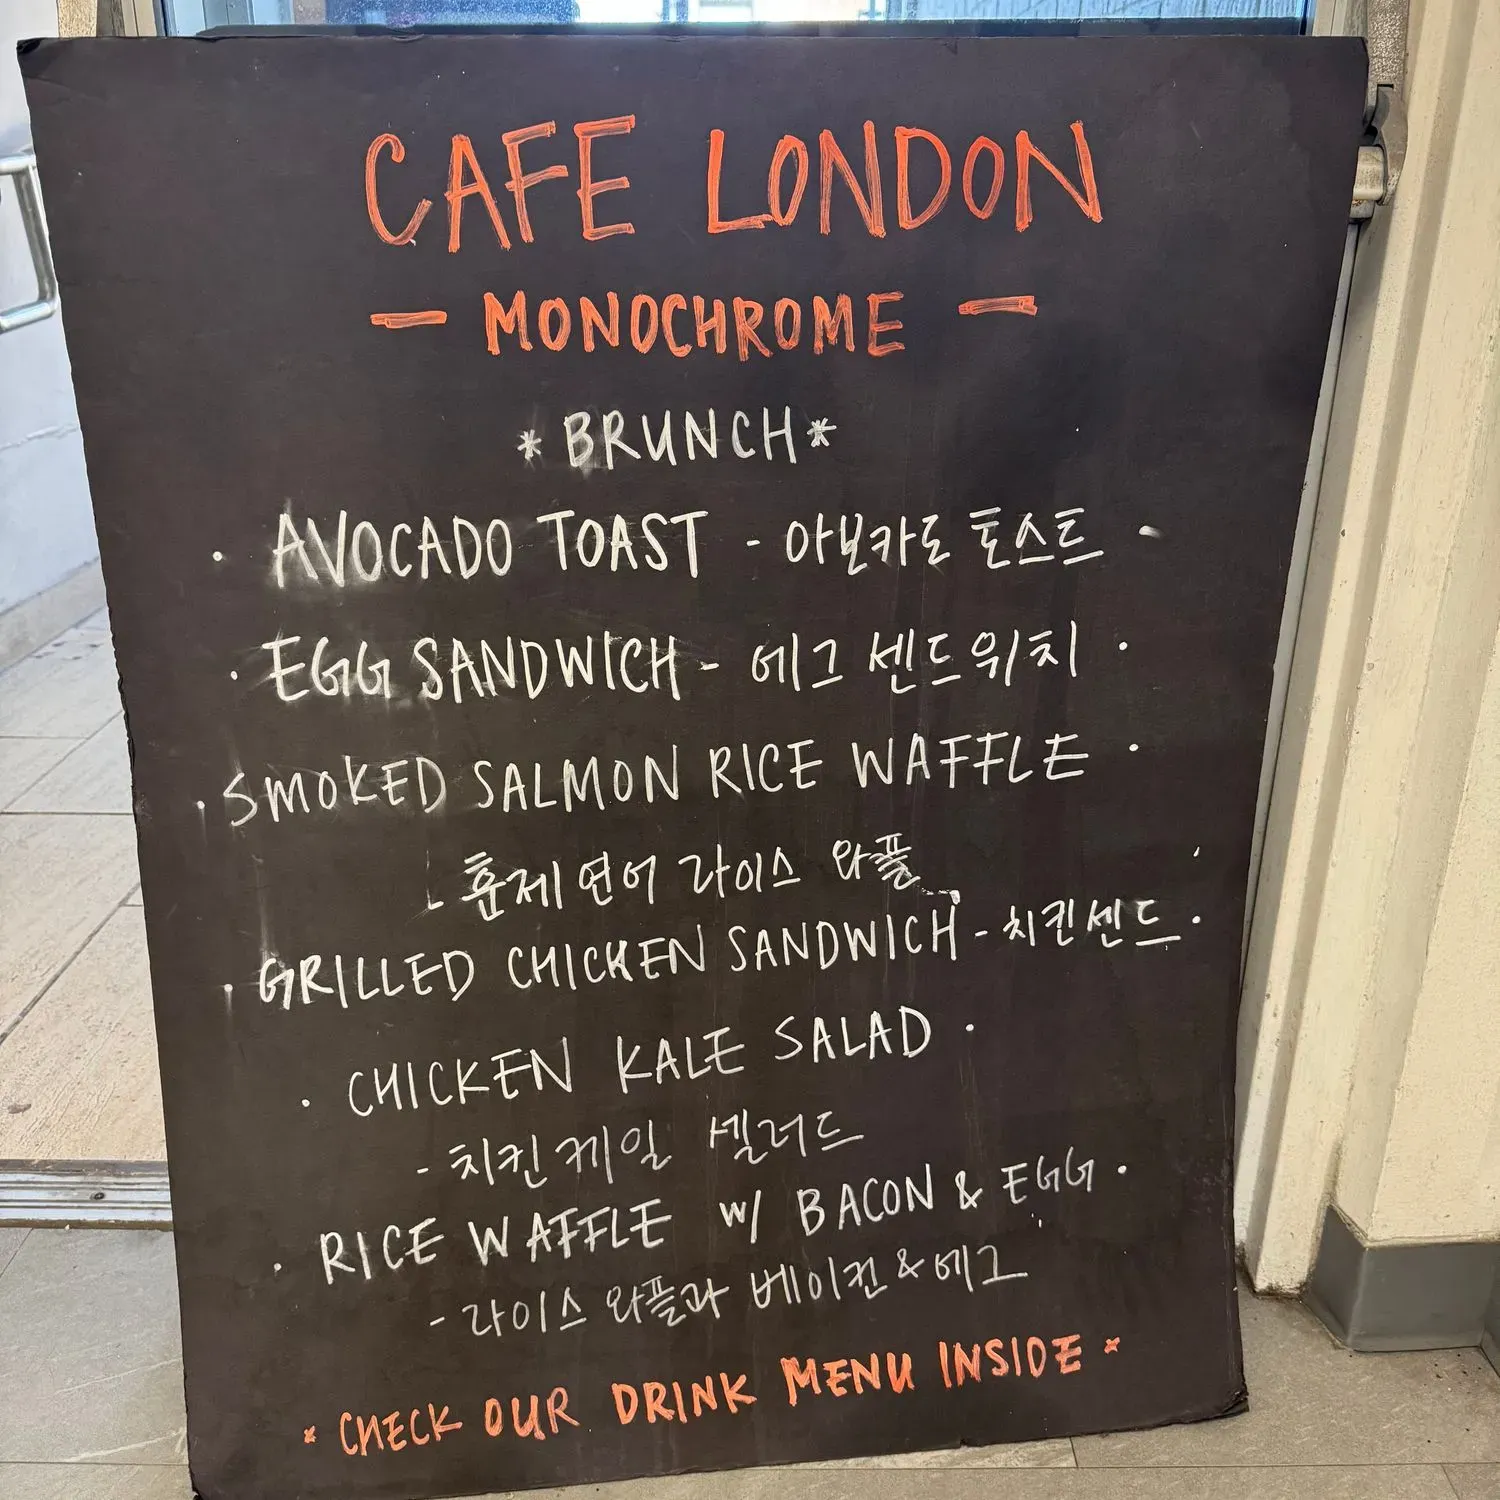 CAFE LONDON
— MONOCHROME —
*BRUNCH*
· AVOCADO TOAST - 아보카도 토스트 ·
· EGG SANDWICH - 에그 센드위치 ·
· SMOKED SALMON RICE WAFFLE ·
- 훈제연어 라이스 와플
· GRILLED CHICKEN SANDWICH - 치킨센드 ·
· CHICKEN KALE SALAD ·
- 치킨케일 셀러드
· RICE WAFFLE w/ BACON & EGG ·
- 라이스 와플과 베이컨 & 에그
* CHECK OUR DRINK MENU INSIDE *